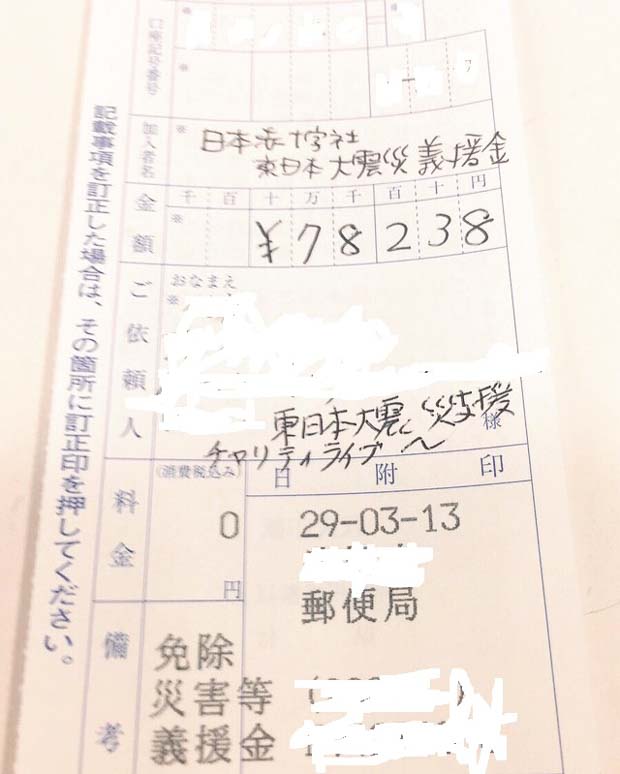 口座記号番号
※
※
7
加入者名
※
日本赤十字社
東日本大震災義援金
金額
千 百 十 万 千 百 十 円
※
¥78238
ご依頼人
おなまえ
※
東日本大震災支援
チャリティライブ 〜
様
料金
(消費税込み)
0
円
日附印
29-03-13
郵便局
備考
免除
災害等
義援金
記載事項を訂正した場合は、その箇所に訂正印を押してください。